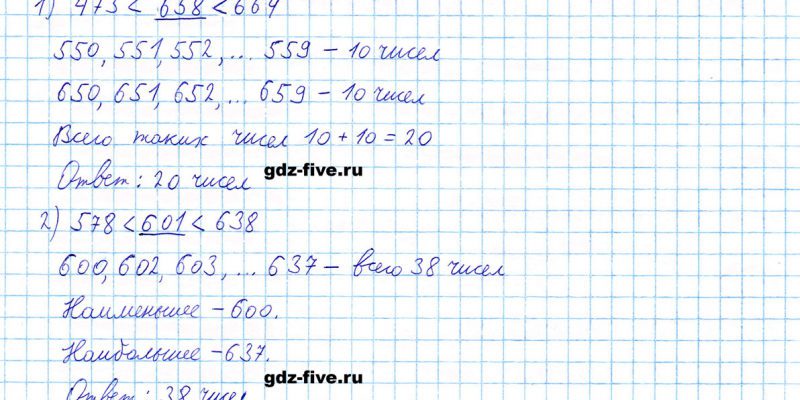 1) 473 < 658 < 664
550, 551, 552, ... 559 – 10 чисел
650, 651, 652, ... 659 – 10 чисел
Всего таких чисел 10 + 10 = 20
gdz-five.ru
Ответ: 20 чисел
2) 578 < 601 < 638
600, 602, 603, ... 637 – всего 38 чисел
Наименьшее – 600.
Наибольшее – 637.
gdz-five.ru
Ответ: 38 чисел